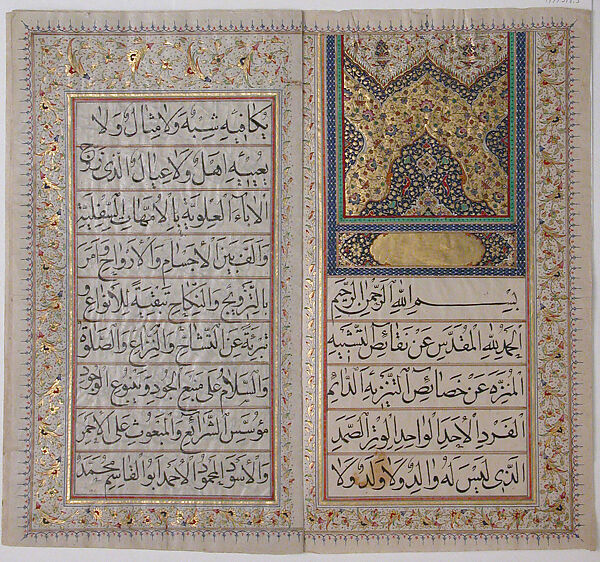 بسم الله الرحمن الرحيم
الحمد لله المقدس عن نقائص التشبيه
المنزه عن خصائص التنزيه الدائم
الفرد الاحد الواحد الوتر الصمد
الذي ليس له والد ولا ولد ولا
يكافيه شبه ولا مثال ولا
يعييه اهل ولا عيال الذي زوج
الاباء العلوية بالامهات السفلية
والف بين الاجسام والارواح وامر
بالتزويج والنكاح تبقية للانواع و
تبرئة عن التشاح والنزاع والصلوة
والسلام على منبع الجود وينبوع الوجود
مؤسس الشرائع والمبعوث على الاحمر
والاسود المحمود الاحمد ابو القاسم محمد